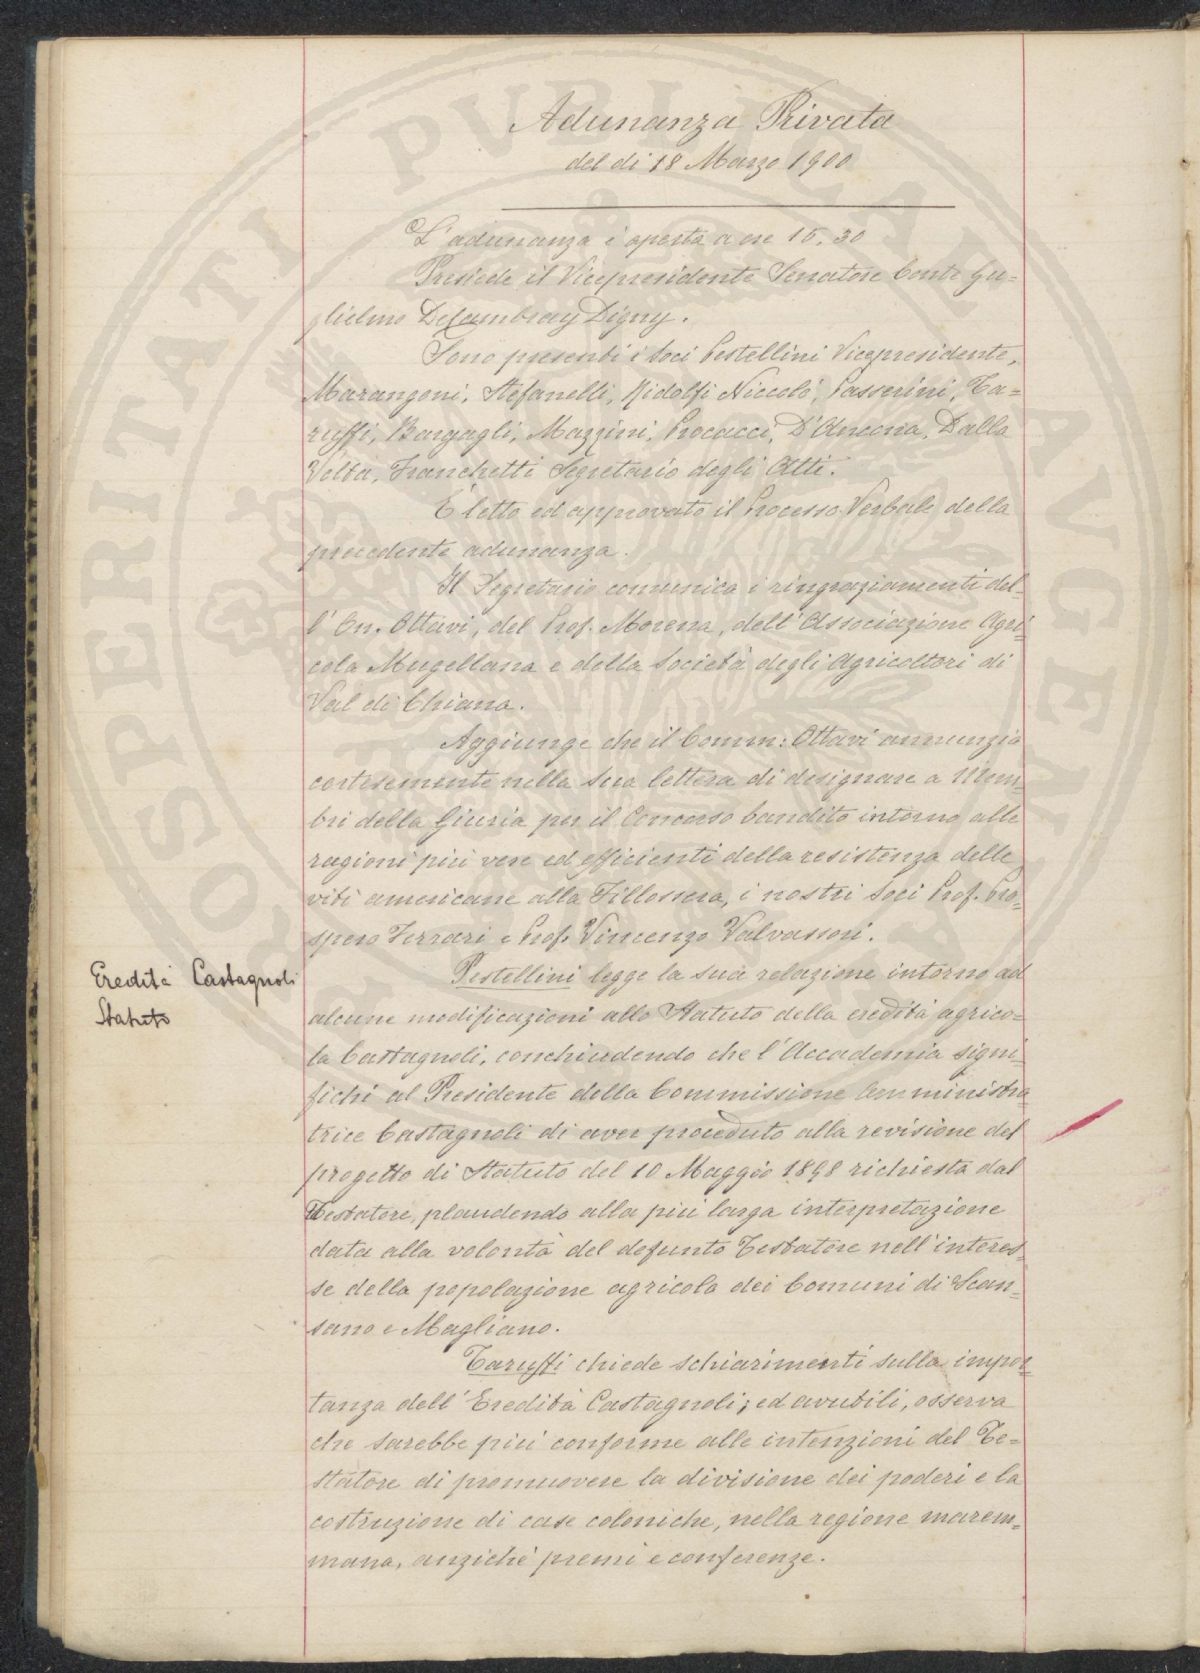 Adunanza Privata
del dì 18 Marzo 1900
L'adunanza è aperta a ore 15.30
Presiede il Vicepresidente Senatore Conte Gu=
glielmo DeCambray Digny.
Sono presenti i Soci Pestellini Vicepresidente,
Marangoni, Stefanelli, Ridolfi Niccolò, Passerini, Ta=
ruffi, Bargagli, Mazzini, Procacci, D'Ancona, Dalla
Volta, Franchetti Segretario degli Atti.
È letto ed approvato il Processo Verbale della
precedente adunanza.
Il Segretario comunica i ringraziamenti del-
l'On. Ottavi, del Prof. Morena, dell'Associazione Agri-
cola Mugellana e della Società degli Agricoltori di
Val di Chiana.
Aggiunge che il Comm: Ottavi annunzia
cortesemente nella sua lettera di designare a Mem-
bri della Giuria per il Concorso bandito intorno alle
ragioni più vere ed efficienti della resistenza delle
viti americane alla Fillossera, i nostri Soci Prof. Pro-
spero Ferrari e Prof. Vincenzo Valvassori.
Eredità Castagnoli
Statuto
Pestellini legge la sua relazione intorno ad
alcune modificazioni allo Statuto della eredità agrico=
la Castagnoli, conchiudendo che l'Accademia signi-
fichi al Presidente della Commissione Amministra-
trice Castagnoli di aver proceduto alla revisione del
progetto di Statuto del 10 Maggio 1898 richiesta dal
Testatore, plaudendo alla più larga interpretazione
data alla volontà del defunto Testatore nell'interes-
se della popolazione agricola dei Comuni di Scan-
sano e Magliano.
Taruffi chiede schiarimenti sulla impor-
tanza dell'Eredità Castagnoli; ed avutili, osserva
che sarebbe più conforme alle intenzioni del Te=
statore di promuovere la divisione dei poderi e la
costruzione di case coloniche, nella regione marem-
mana, anziché premi e conferenze.
PROSPERITATI PVBLICAE AVGENDAE